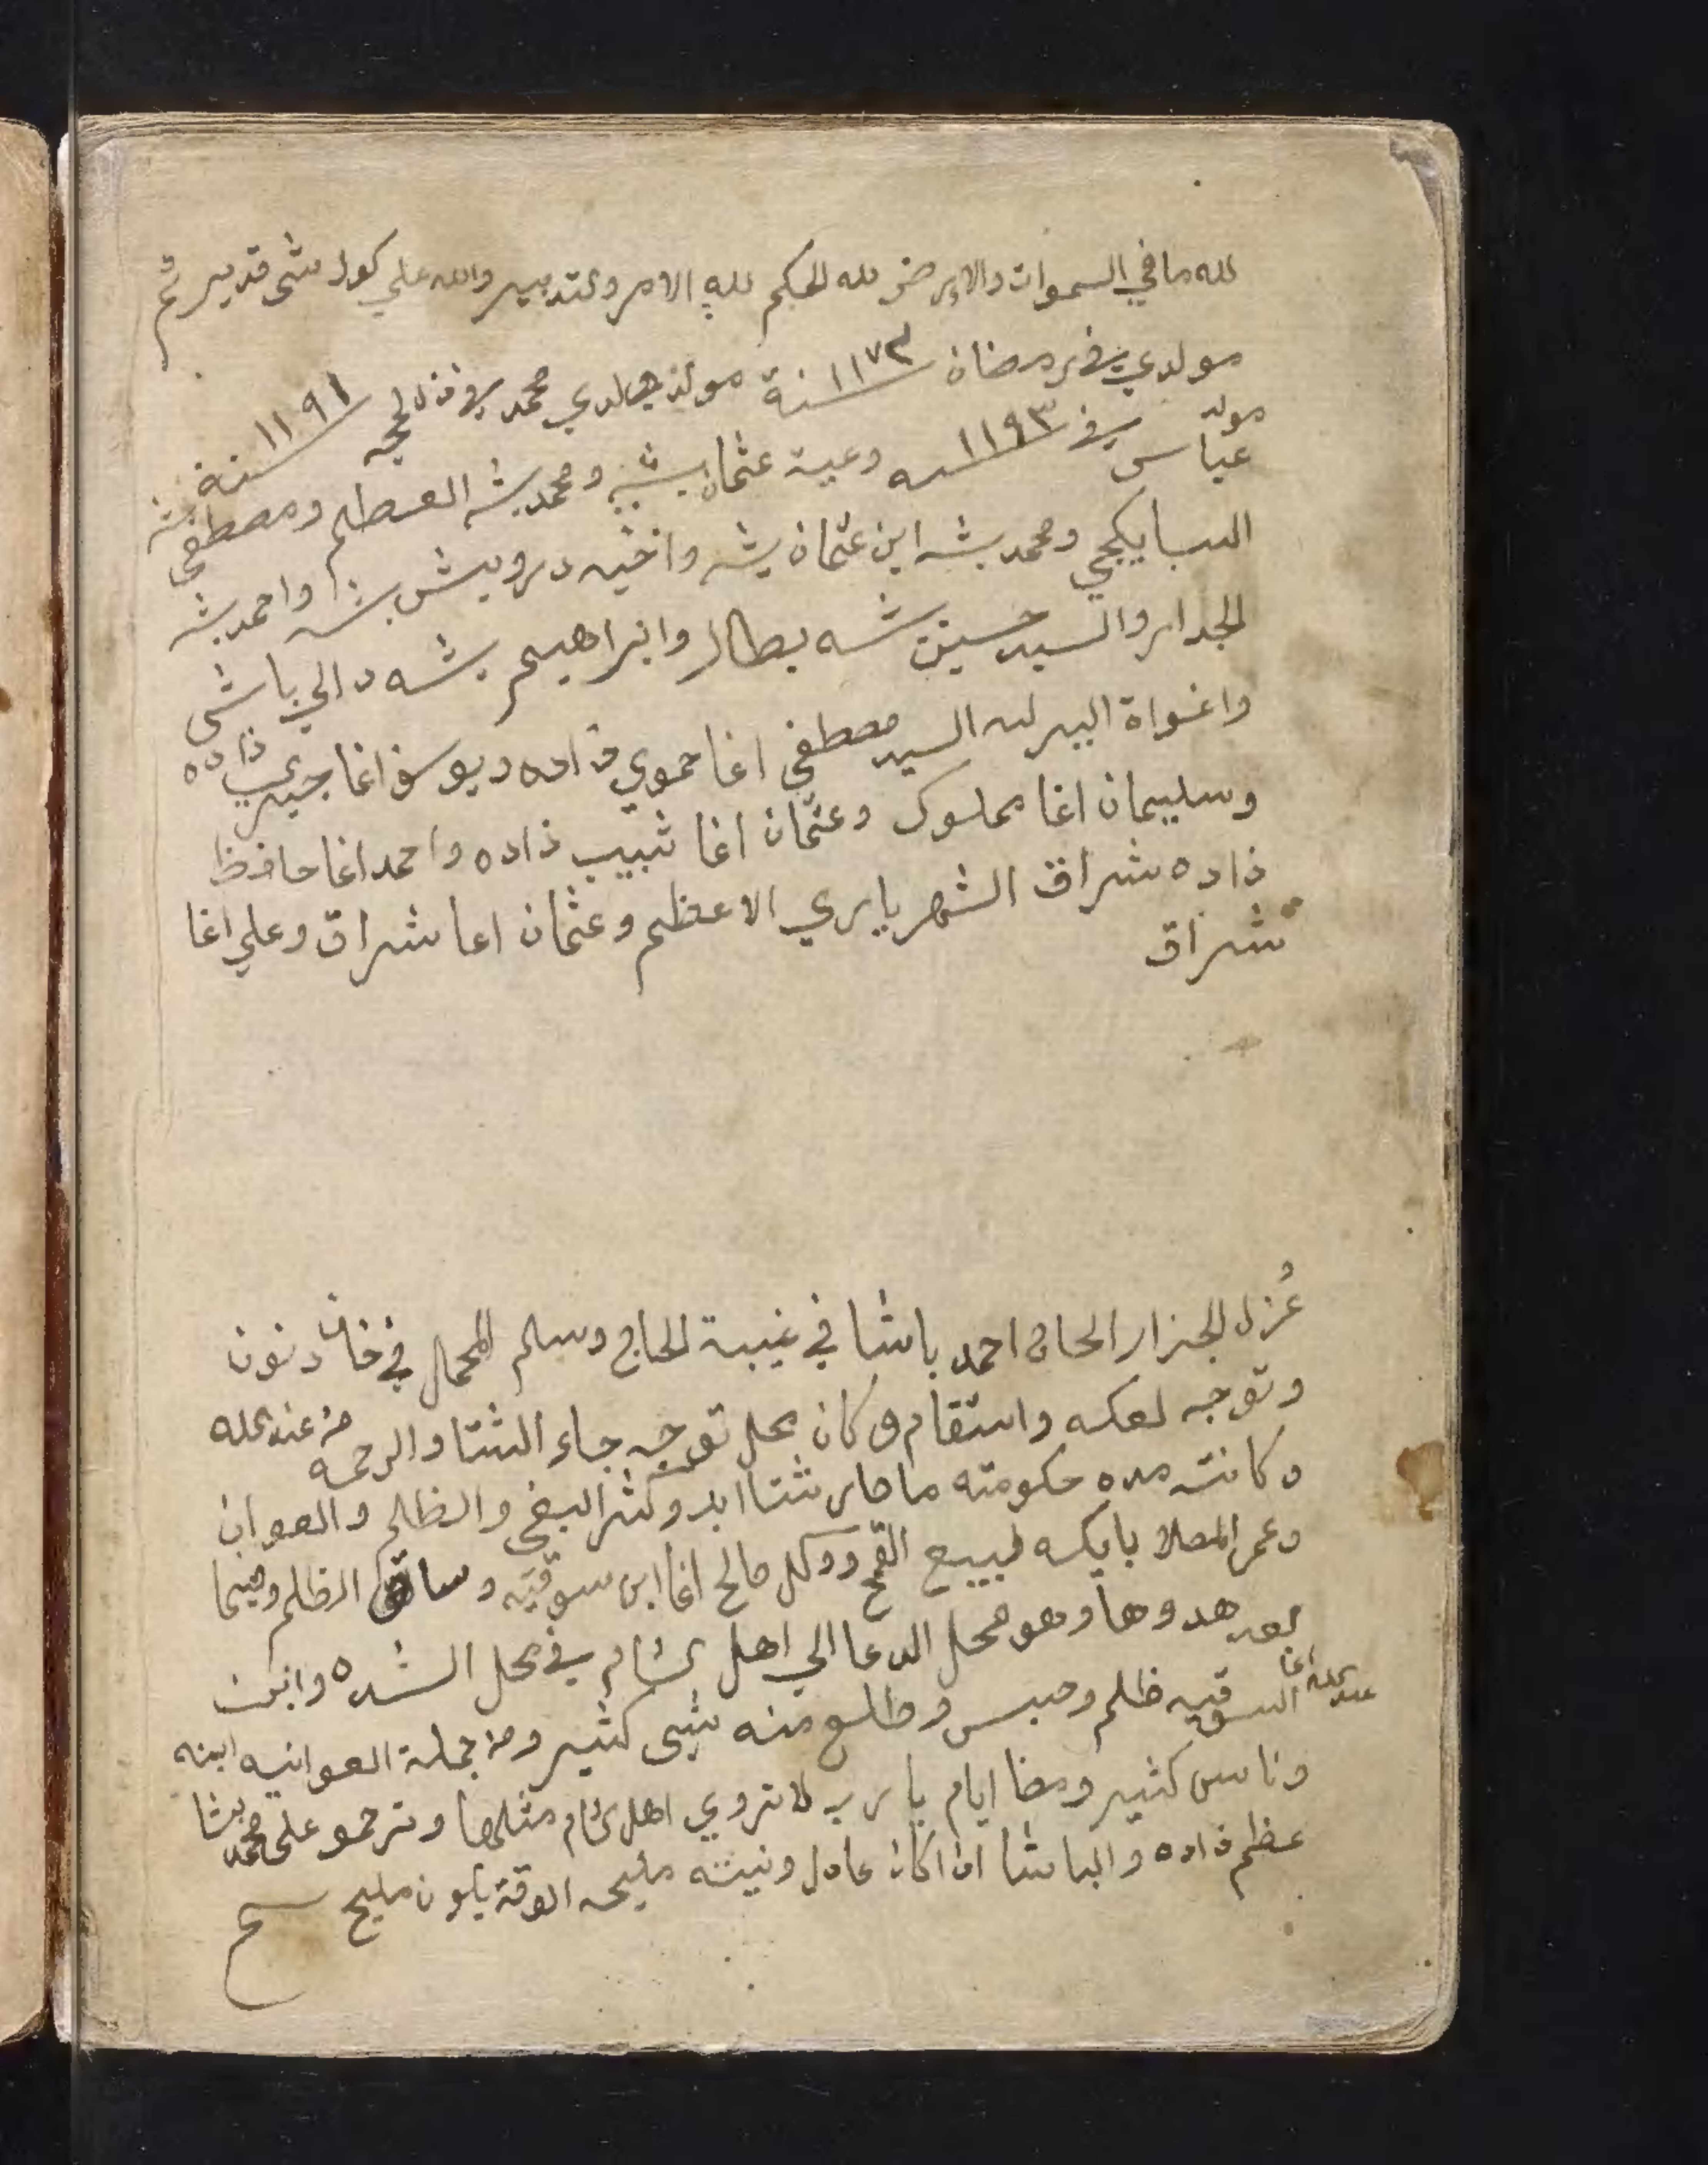 لله ما في السموات والارض لله الحكم لله الامر وتتدبير والله علي كول شي قدير ثم
مولدي في رمضان سنة ١١٧٣ مولد محمد في ذالحجه سنة ١١٩١
مولد عباس في سنه ١١٩٣ وعية عثمان بشه ومحمد بشه العظم ومصطفى بشه
السبايكجي ومحمد بشه ابن عثمان بشه واخيه درويش بشه واحمد بشه
الجدار والسيد حسين بشه بطال وابراهيم بشه دالي باشي
واغواة اليرليه السيد مصطفي اغا حموي ذاده ويوسف اغا جيري ذاده
وسليمان اغا مملوك وعثمان اغا شبيب ذاده واحمد اغا حافظ
ذاده شراق الشهر ياري الاعظم وعثمان اغا شراق وعلي اغا
شراق
عُزل الجزار الحاج احمد باشا في غيبة الحاج وسلم المحمل في خان دنون
وتوجه لعكه واستقام وكان محل توجه جاء الشتا والرحمه من عند الله
وكانت مده حكومته ما صار شتا ابد وكثر البغي والظلم والعوان
وعمر المصلا بايكه لبيع القمح ووكل صالح اغا ابن سوقيه و الظلم وفيما
بعد هدوها وهو محل الدعا الي اهل الشام في محل الشده وابن
السوقيه ظلم وحبس وطلع منه شي كثير ومن جملة العوانيه ابنه عبدالله اغا
وناس كثير ومضا ايام يا رب لا تروي اهل الشام مثلها وترحمو على محمد بشا
عظم ذاده والباشا اذا كان عادل ونيته مليحه الوقة يكون مليح